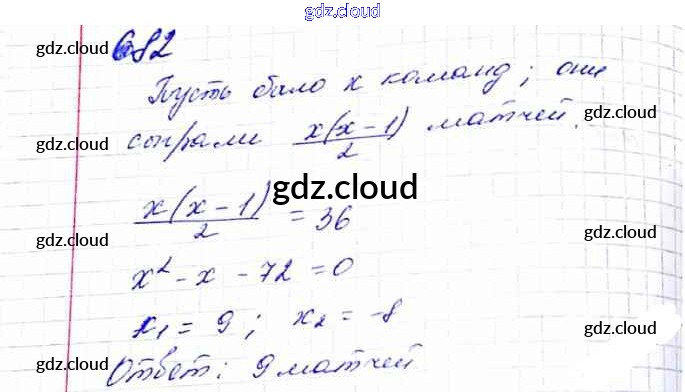 gdz.cloud
682
gdz.cloud gdz.cloud
Пусть было x команд; они
сыграли x(x-1)/2 матчей.
gdz.cloud gdz.cloud
gdz.cloud
x(x-1)/2 = 36
gdz.cloud gdz.cloud
x² - x - 72 = 0
x₁ = 9; x₂ = -8
gdz.cloud
Ответ: 9 матчей
gdz.cloud